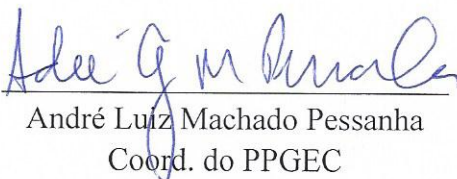 André Luiz Machado Pessanha
Coord. do PPGEC